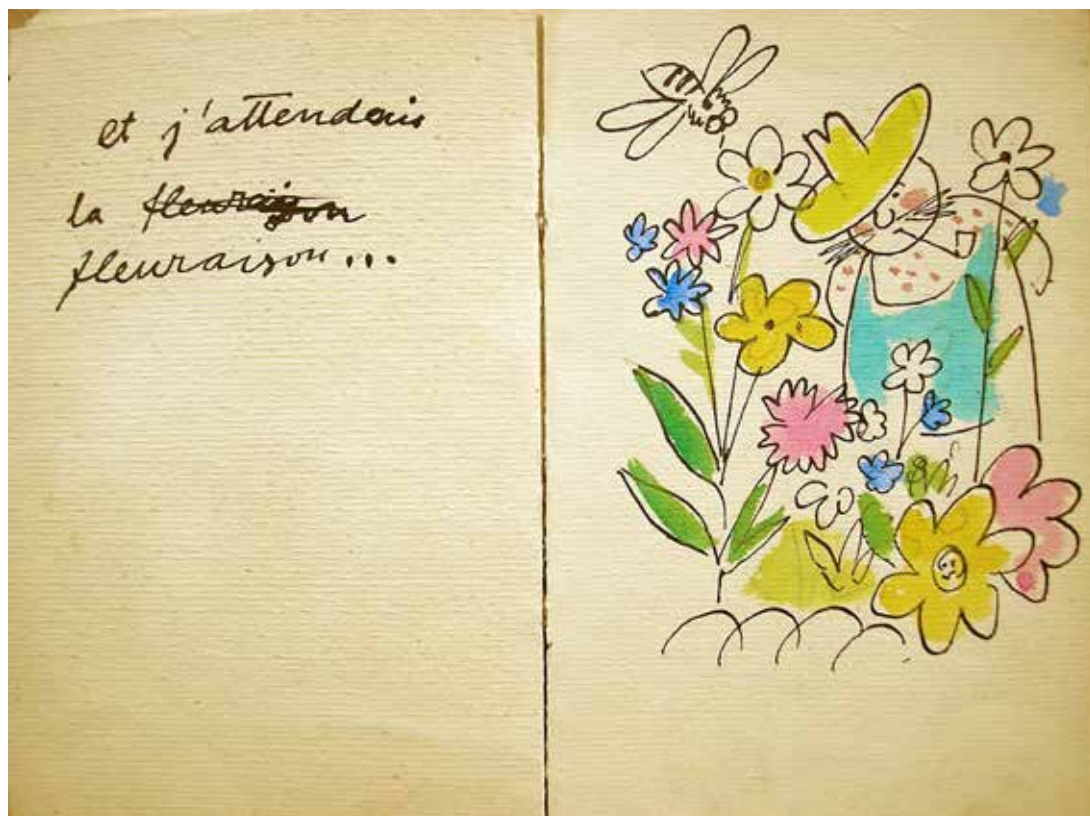 et j'attendais
la fleuraison
fleuraison...